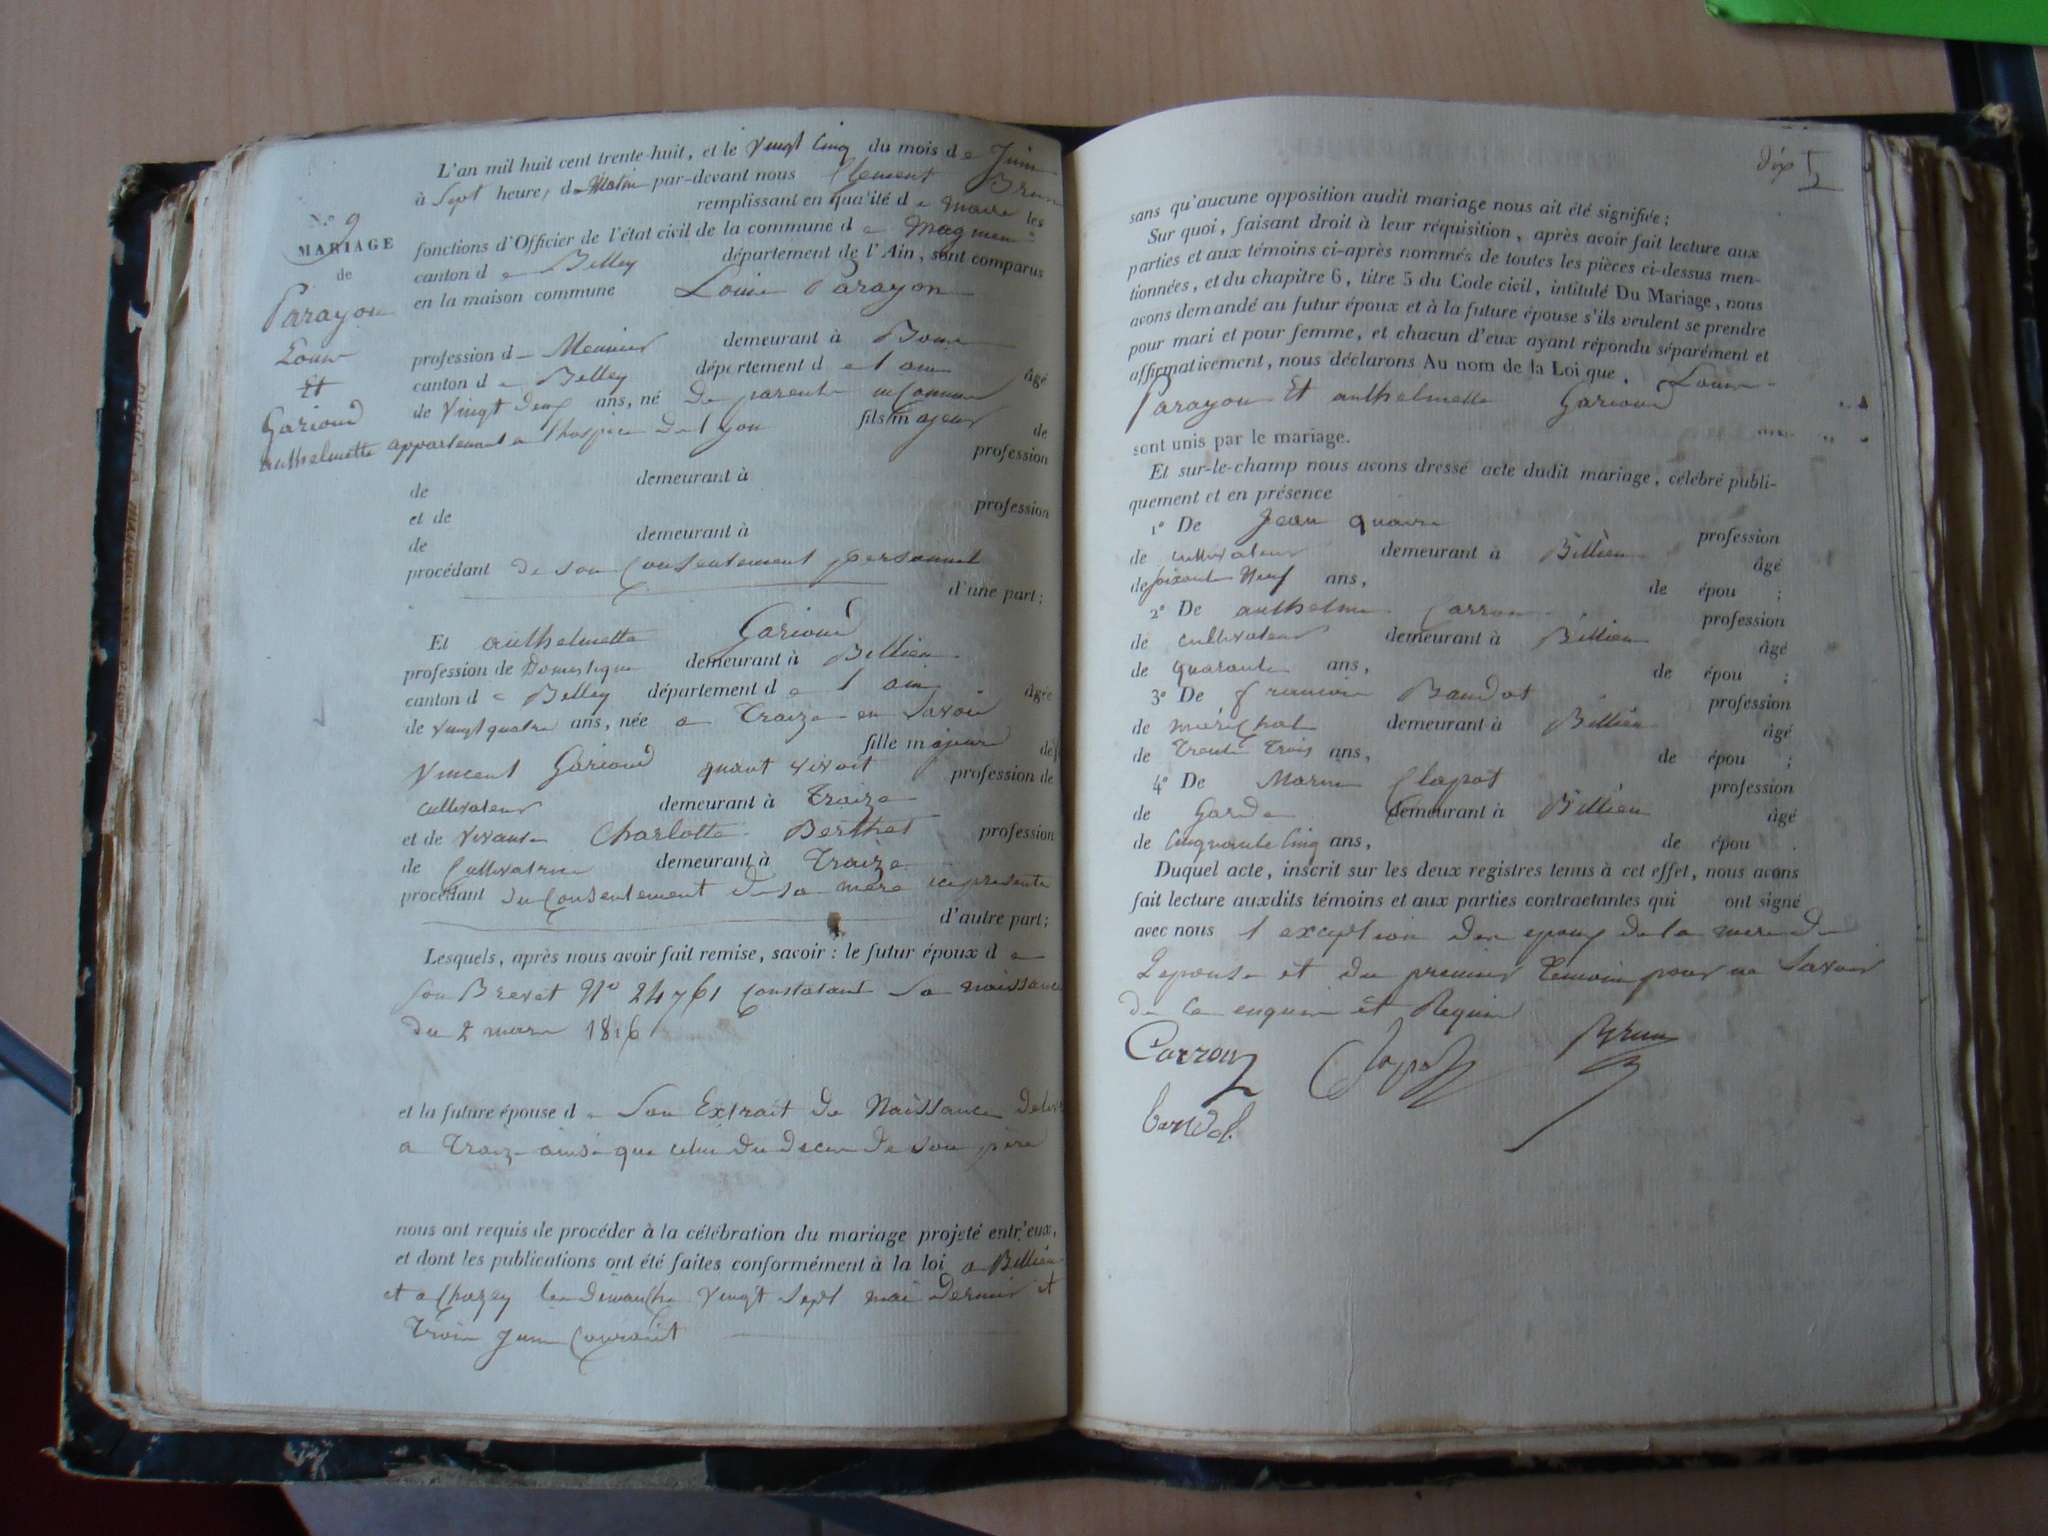 L'an mil huit cent trente-huit, et le vingt cinq du mois de Juin
à Sept heures du Matin par-devant nous Clement Brun
remplissant en qualité de maire les
fonctions d'Officier de l'état civil de la commune de Magnieu
canton de Belley département de l'Ain, sont comparus
en la maison commune Louis Parayon
N.º 9
MARIAGE
de
Parayon
Louis
Et
Garioud
anthelmette
profession de Meunier demeurant à
canton de Belley département de l ain âgé
de vingt deux ans, né De parents inconnus
appartenant a l hospice De Lyon fils majeur de
profession
de demeurant à
et de profession
de demeurant à
procédant de son Consentement personnel
d'une part;
Et anthelmette Garioud
profession de Domestique demeurant à Billieu
canton de Belley département de l ain âgée
de vingt quatre ans, née a Traize en Savoie
fille majeure de
Vincent Garioud quant vivait profession de
cultivateur demeurant à Traize
et de vivante Charlotte Berthet profession
de Cultivatrice demeurant à Traize
procédant du Consentement de sa mère ici presente
d'autre part;
Lesquels, après nous avoir fait remise, savoir: le futur époux de
son Brevet Nº 24761 Constatant sa naissance
du 2 mars 1816
et la future épouse de son Extrait de Naissance delivré
a Traize ainsi que celui du Deces de son père
nous ont requis de procéder à la célébration du mariage projeté entr'eux,
et dont les publications ont été faites conformément à la loi a Billieu
et a Chazey les dimanche vingt sept mai dernier et
trois juin Courant
dix
sans qu'aucune opposition audit mariage nous ait été signifiée;
Sur quoi, faisant droit à leur réquisition, après avoir fait lecture aux
parties et aux témoins ci-après nommés de toutes les pièces ci-dessus men-
tionnées, et du chapitre 6, titre 5 du Code civil, intitulé Du Mariage, nous
avons demandé au futur époux et à la future épouse s'ils veulent se prendre
pour mari et pour femme, et chacun d'eux ayant répondu séparément et
affirmativement, nous déclarons Au nom de la Loi que, Louis
Parayon Et anthelmette Garioud
sont unis par le mariage.
Et sur-le-champ nous avons dressé acte dudit mariage, célébré publi-
quement et en présence
1º De Jean profession
de cultivateur demeurant à Billieu âgé
de soixante Neuf ans, de épou ;
2º De anthelme Carron profession
de cultivateur demeurant à Billieu âgé
de quarante ans, de épou ;
3º De francois Baudot profession
de marechal demeurant à Billieu âgé
de Trente Trois ans, de épou ;
4º De Marin Clapot profession
de Garde demeurant à Billieu âgé
de Cinquante Cinq ans, de épou .
Duquel acte, inscrit sur les deux registres tenus à cet effet, nous avons
fait lecture auxdits témoins et aux parties contractantes qui ont signé
avec nous l exception des epoux de la mere de
L epouse et du premier Temoin pour ne Savoir
de ce enquis et Requis
Carron Clapot Brun